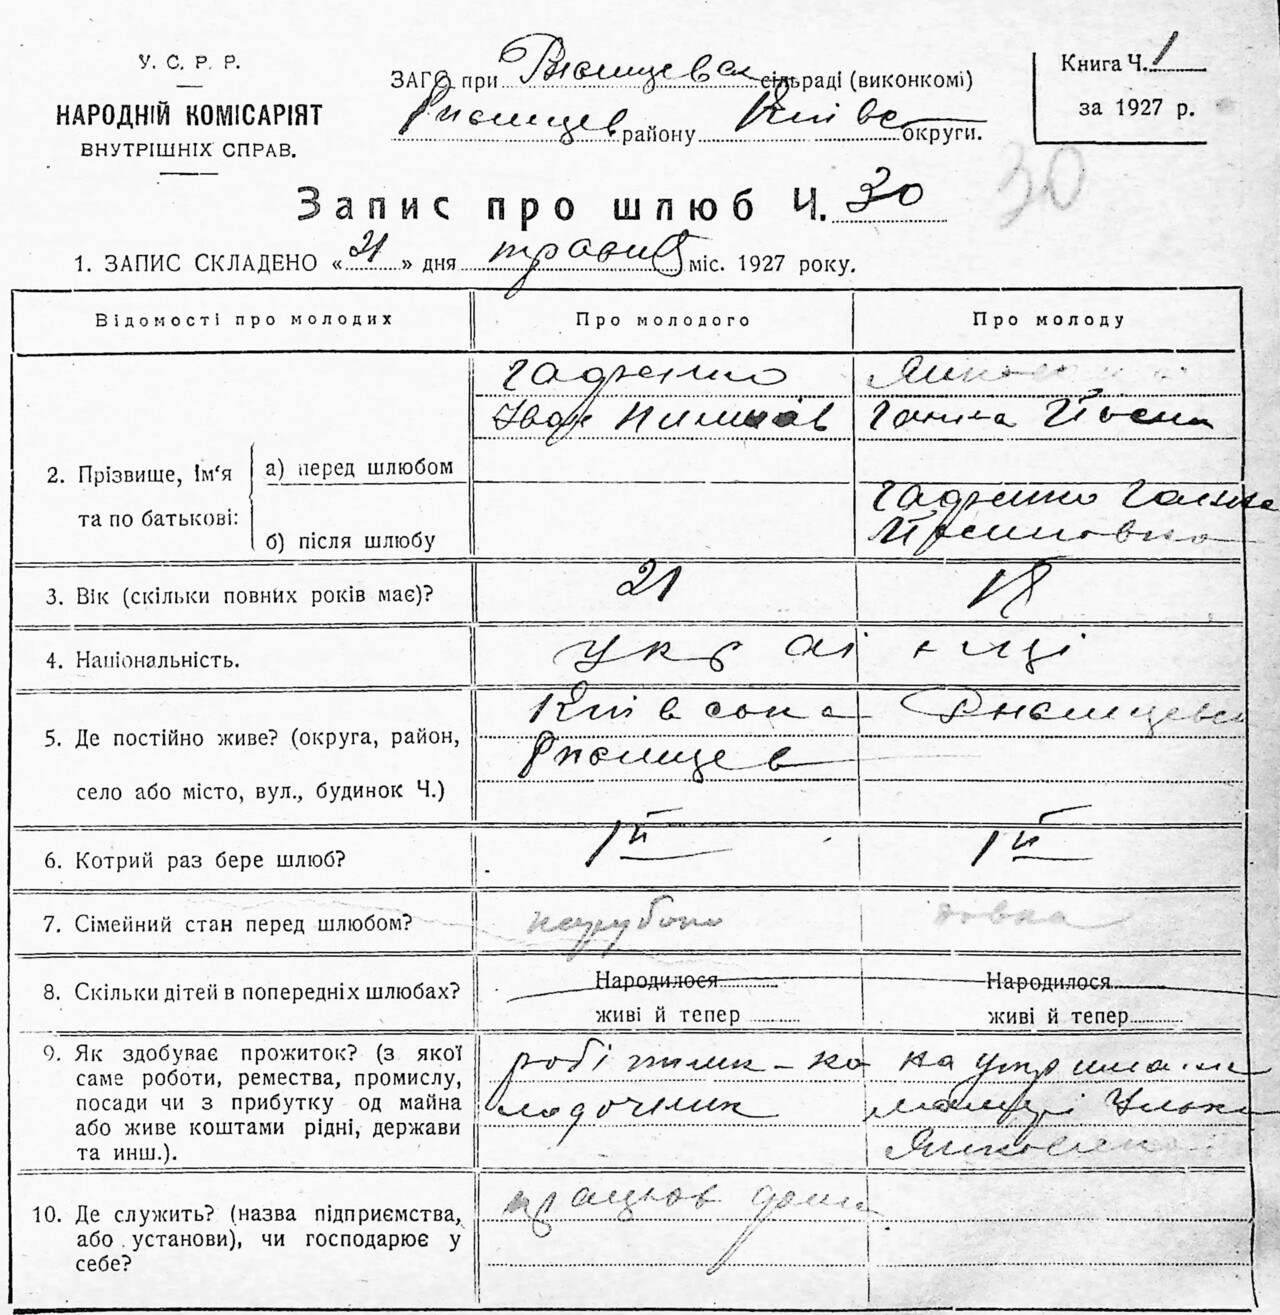 У. С. Р. Р.
НАРОДНІЙ КОМІСАРІЯТ
ВНУТРІШНІХ СПРАВ.
ЗАГС при Ржищевск сільраді (виконкомі)
Ржищев району Київс округи.
Книга Ч. 1
за 1927 р.
30
Запис про шлюб Ч. 30
1. ЗАПИС СКЛАДЕНО «21» дня травня міс. 1927 року.
Відомості про молодих Про молодого Про молоду
2. Прізвище, Ім'я та по батькові:
а) перед шлюбом
Іван
Ганна
б) після шлюбу
Ганна
Йосиповна
3. Вік (скільки повних років має)? 21 18
4. Національність. Українці
5. Де постійно живе? (округа, район,
село або місто, вул., будинок Ч.)
Київсока
Ржищев
6. Котрий раз бере шлюб? 1й 1й
7. Сімейний стан перед шлюбом? парубок дівка
8. Скільки дітей в попередніх шлюбах?
Народилося
живі й тепер
Народилося
живі й тепер
9. Як здобуває прожиток? (з якої
саме роботи, ремества, промислу,
посади чи з прибутку од майна
або живе коштами рідні, держави
та инш.).
робітник - ко
лодочник
на утриман
матері
10. Де служить? (назва підприємства,
або установи), чи господарює у
себе?
працював дома